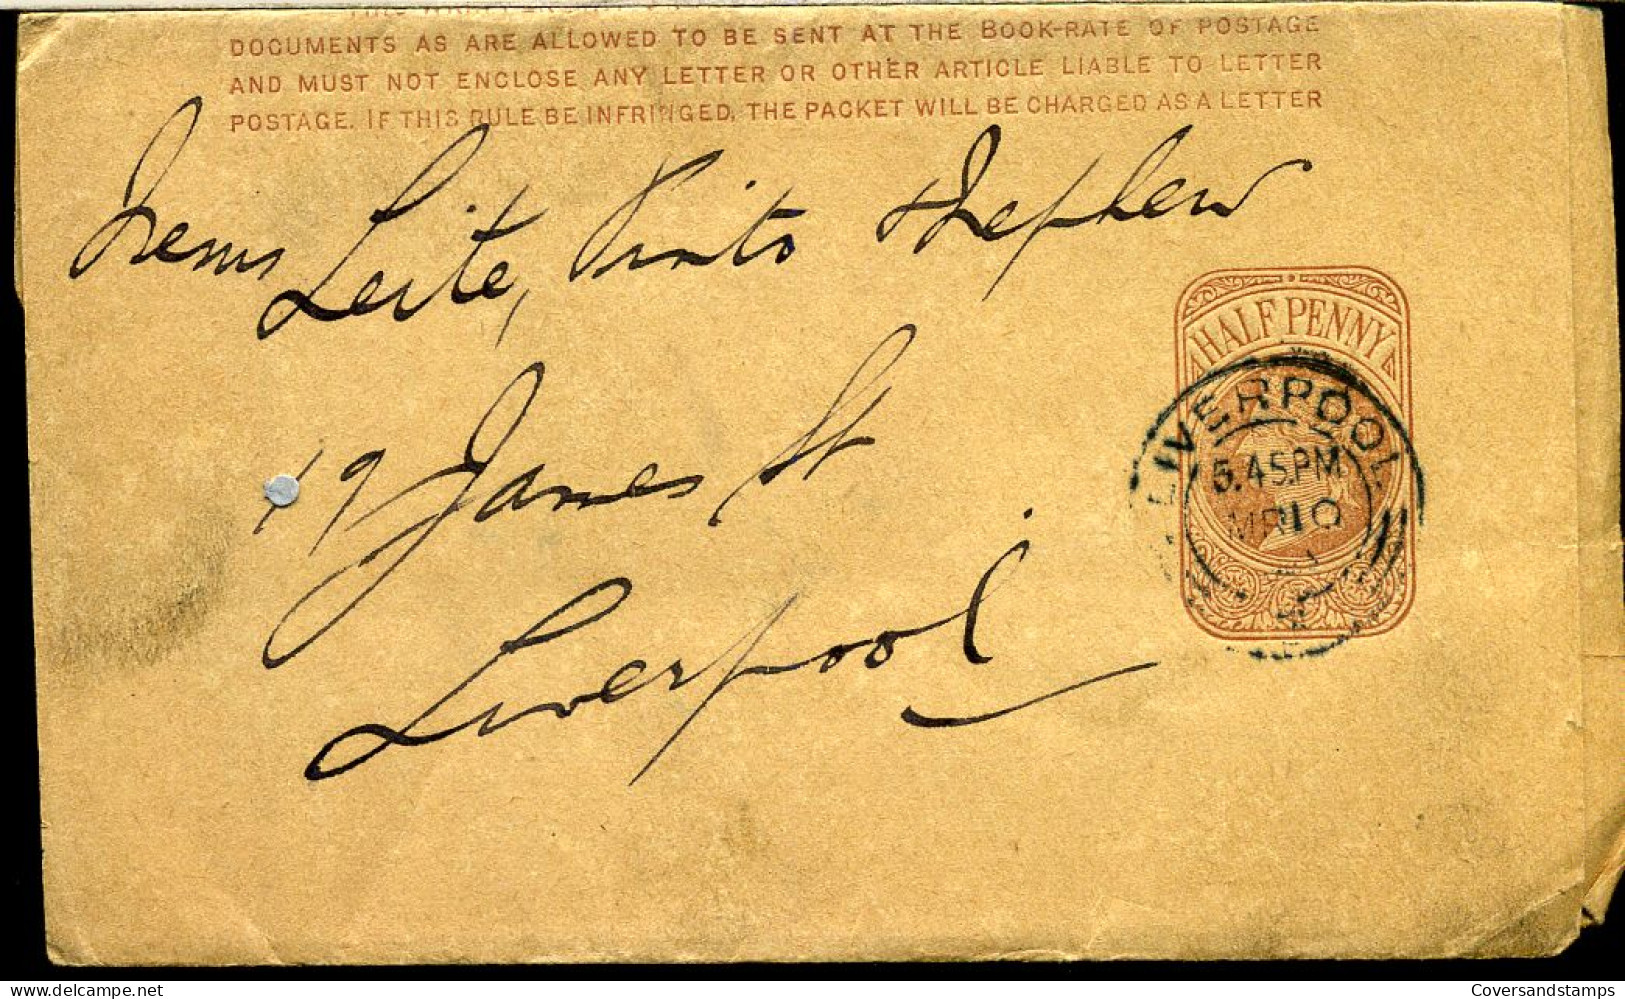 DOCUMENTS AS ARE ALLOWED TO BE SENT AT THE BOOK-RATE OF POSTAGE
AND MUST NOT ENCLOSE ANY LETTER OR OTHER ARTICLE LIABLE TO LETTER
POSTAGE. IF THIS RULE BE INFRINGED, THE PACKET WILL BE CHARGED AS A LETTER
Messrs Leite, Pinto & Nephew
49 James St
Liverpool
HALF PENNY
LIVERPOOL
5.45PM
MR 10
Coversandstamps